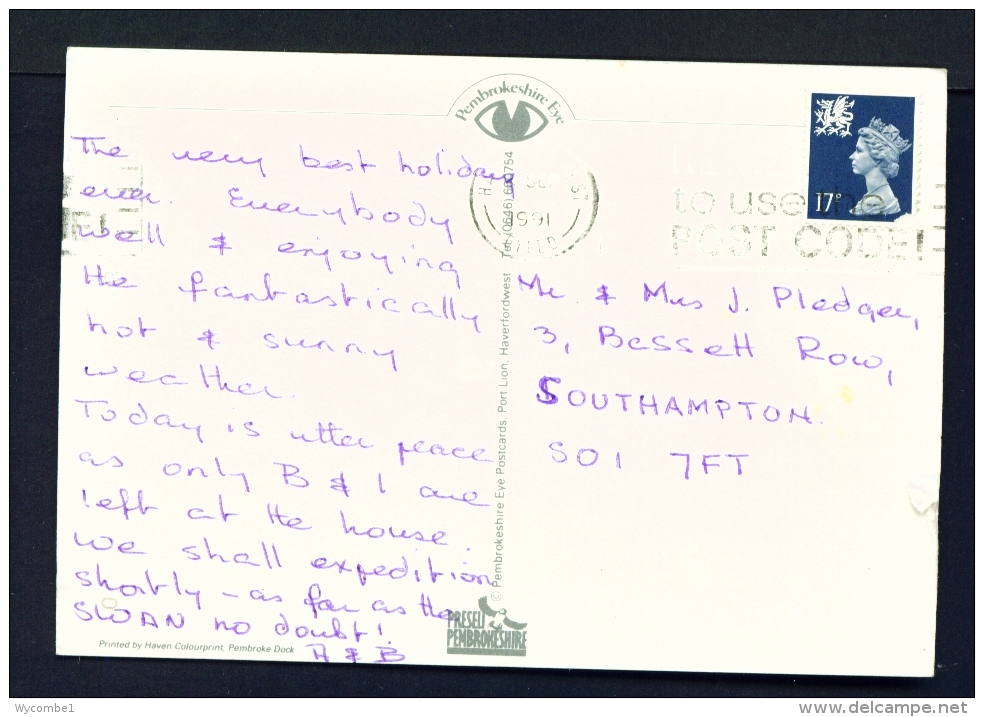 Pembrokeshire Eye
The very best holiday
ever. Everybody
well & enjoying
the fantastically
hot & sunny
weather.
Today is utter peace
as only B & I are
left at the house.
We shall expedition
shortly - as far as the
SWAN no doubt!
A & B
Printed by Haven Colourprint, Pembroke Dock
© Pembrokeshire Eye Postcards, Port Lion, Haverfordwest Tel: (0646)
PRESELI
PEMBROKESHIRE
1991
to use the
POST CODE
17P
Mr & Mrs J. Pledger,
3, Bassett Row,
SOUTHAMPTON.
SO1 7FT
Wycombe1
www.delcampe.net